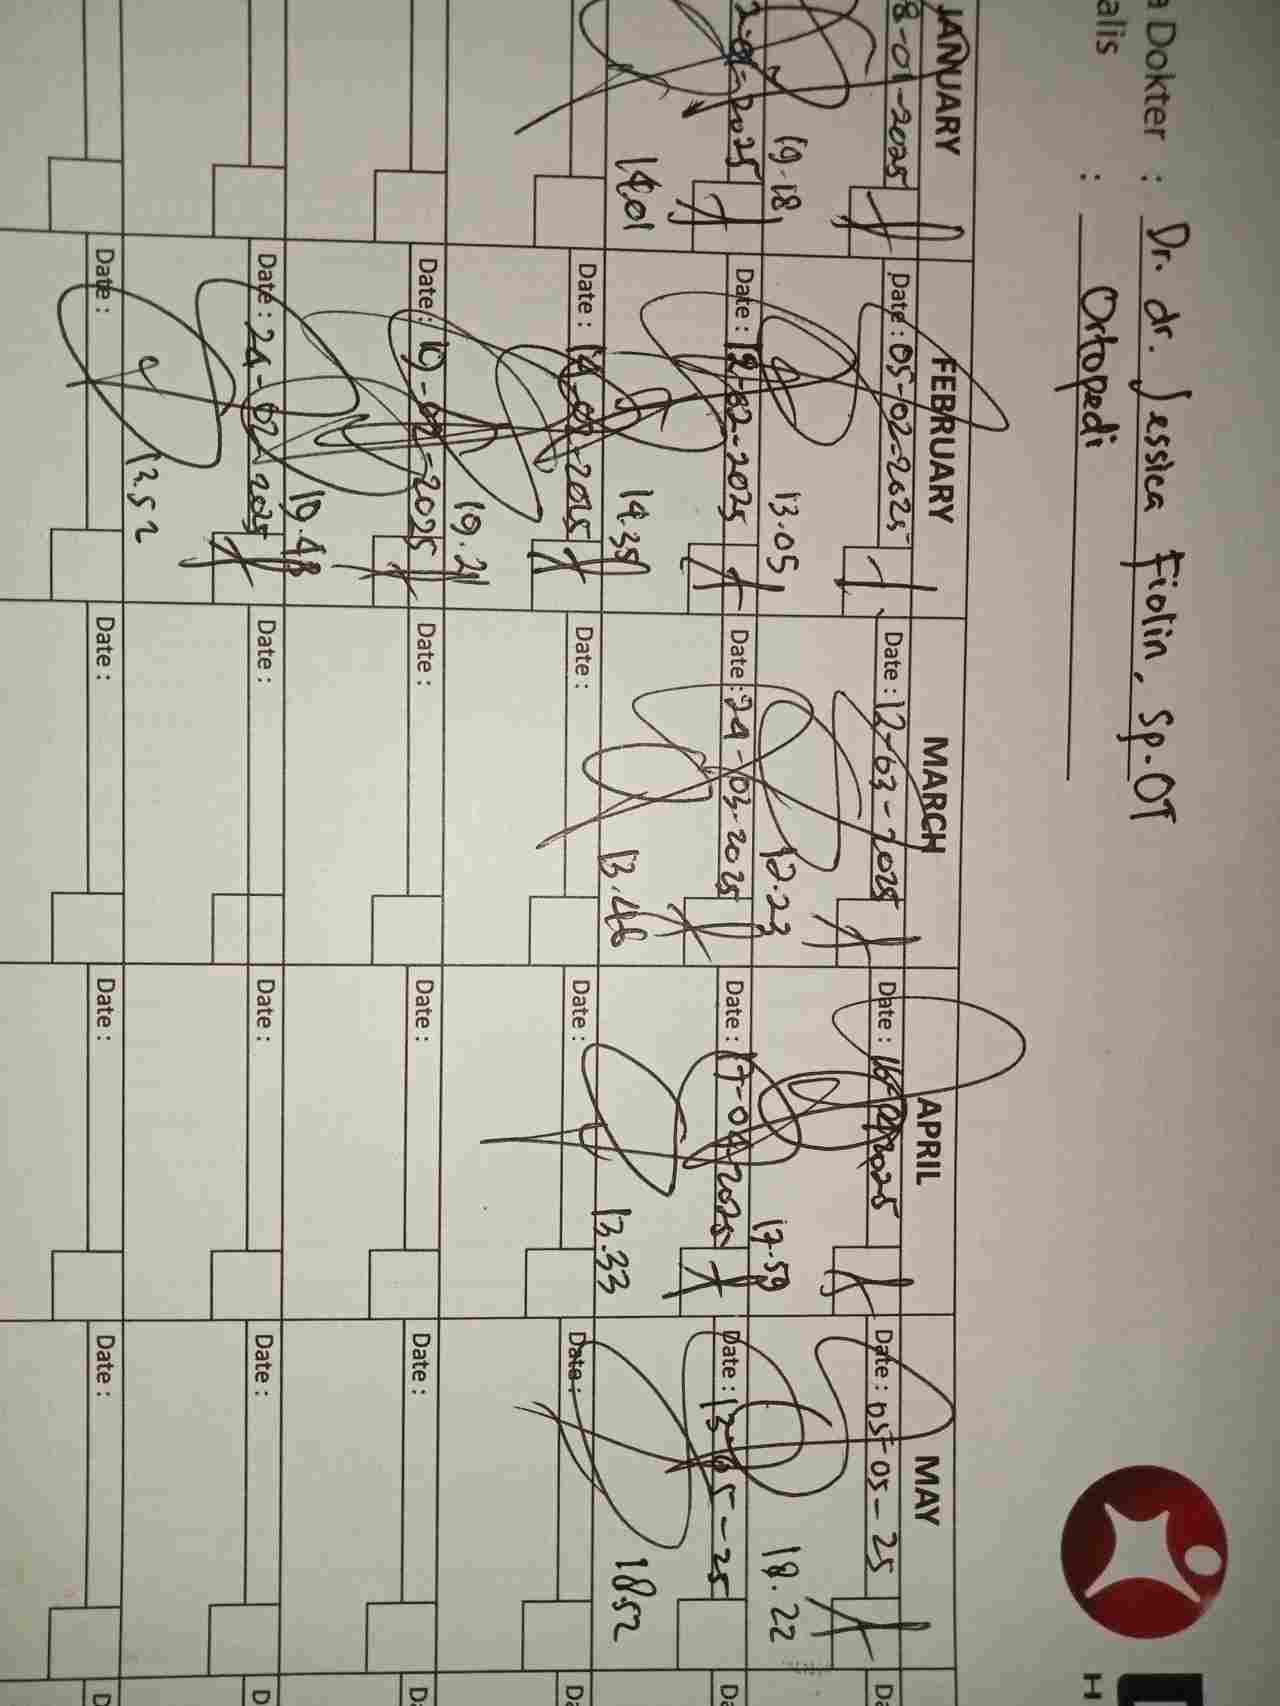 a Dokter : Dr. dr. Jessica Fiolin, Sp.OT
alis : Ortopedi
H
JANUARY FEBRUARY MARCH APRIL MAY
8-01-2025 Date : 05-02-2025 Date : 12-03-2025 Date : 16-04-2025 Date : 05-05-25
19.18 13.05 12.23 17.59 18.22
2-01-2025 Date : 12-02-2025 Date : 24-03-2025 Date : 17-04-2025 Date : 13-05-25
14.01 14.35 13.46 13.33 18.52
Date : 14-02-2025 Date : Date : Date :
19.21
Date : 19-02-2025 Date : Date : Date :
19.48
Date : 24-02-2025 Date : Date : Date :
13.52
Date : Date : Date : Date :